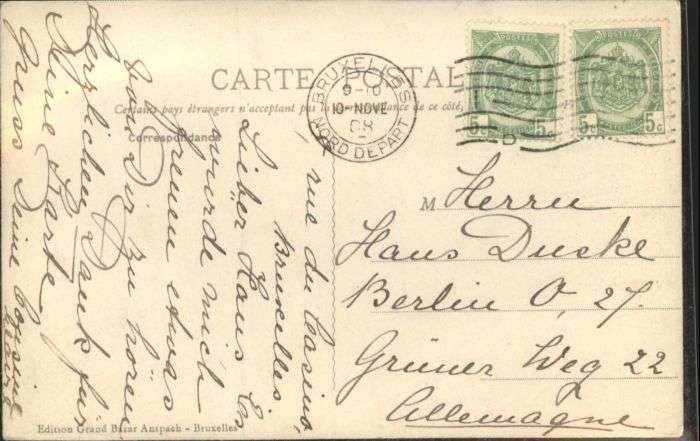 CARTE POSTALE
Certains pays étrangers n'acceptant pas la correspondance de ce côté,
Correspondance
BRUXELLES
9-10
10-NOVE
08
NORD DEPART
5c 5c
5c 5c
M Herrn
Hans Duske
Berlin O, 27.
Grüner Weg 22
Allemagne
rue du Casino,
Bruxelles
Lieber Hans Es
würde mich
freuen etwas
von Dir zu hören
Herzlichen Dank für
Deine Karte
Gruss Deine Cousine
Edition Grand Bazar Anspach - Bruxelles